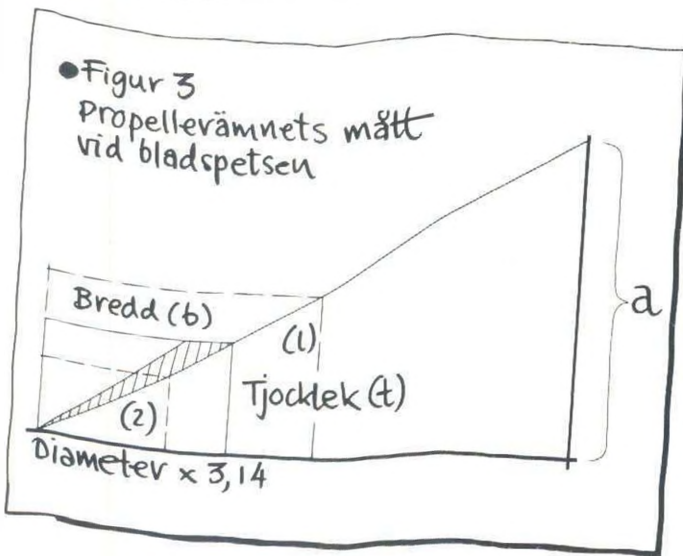 ●Figur 3
Propellerämnets mått
vid bladspetsen
Bredd (b)
(1)
a
Tjocklek (t)
(2)
Diameter x 3,14